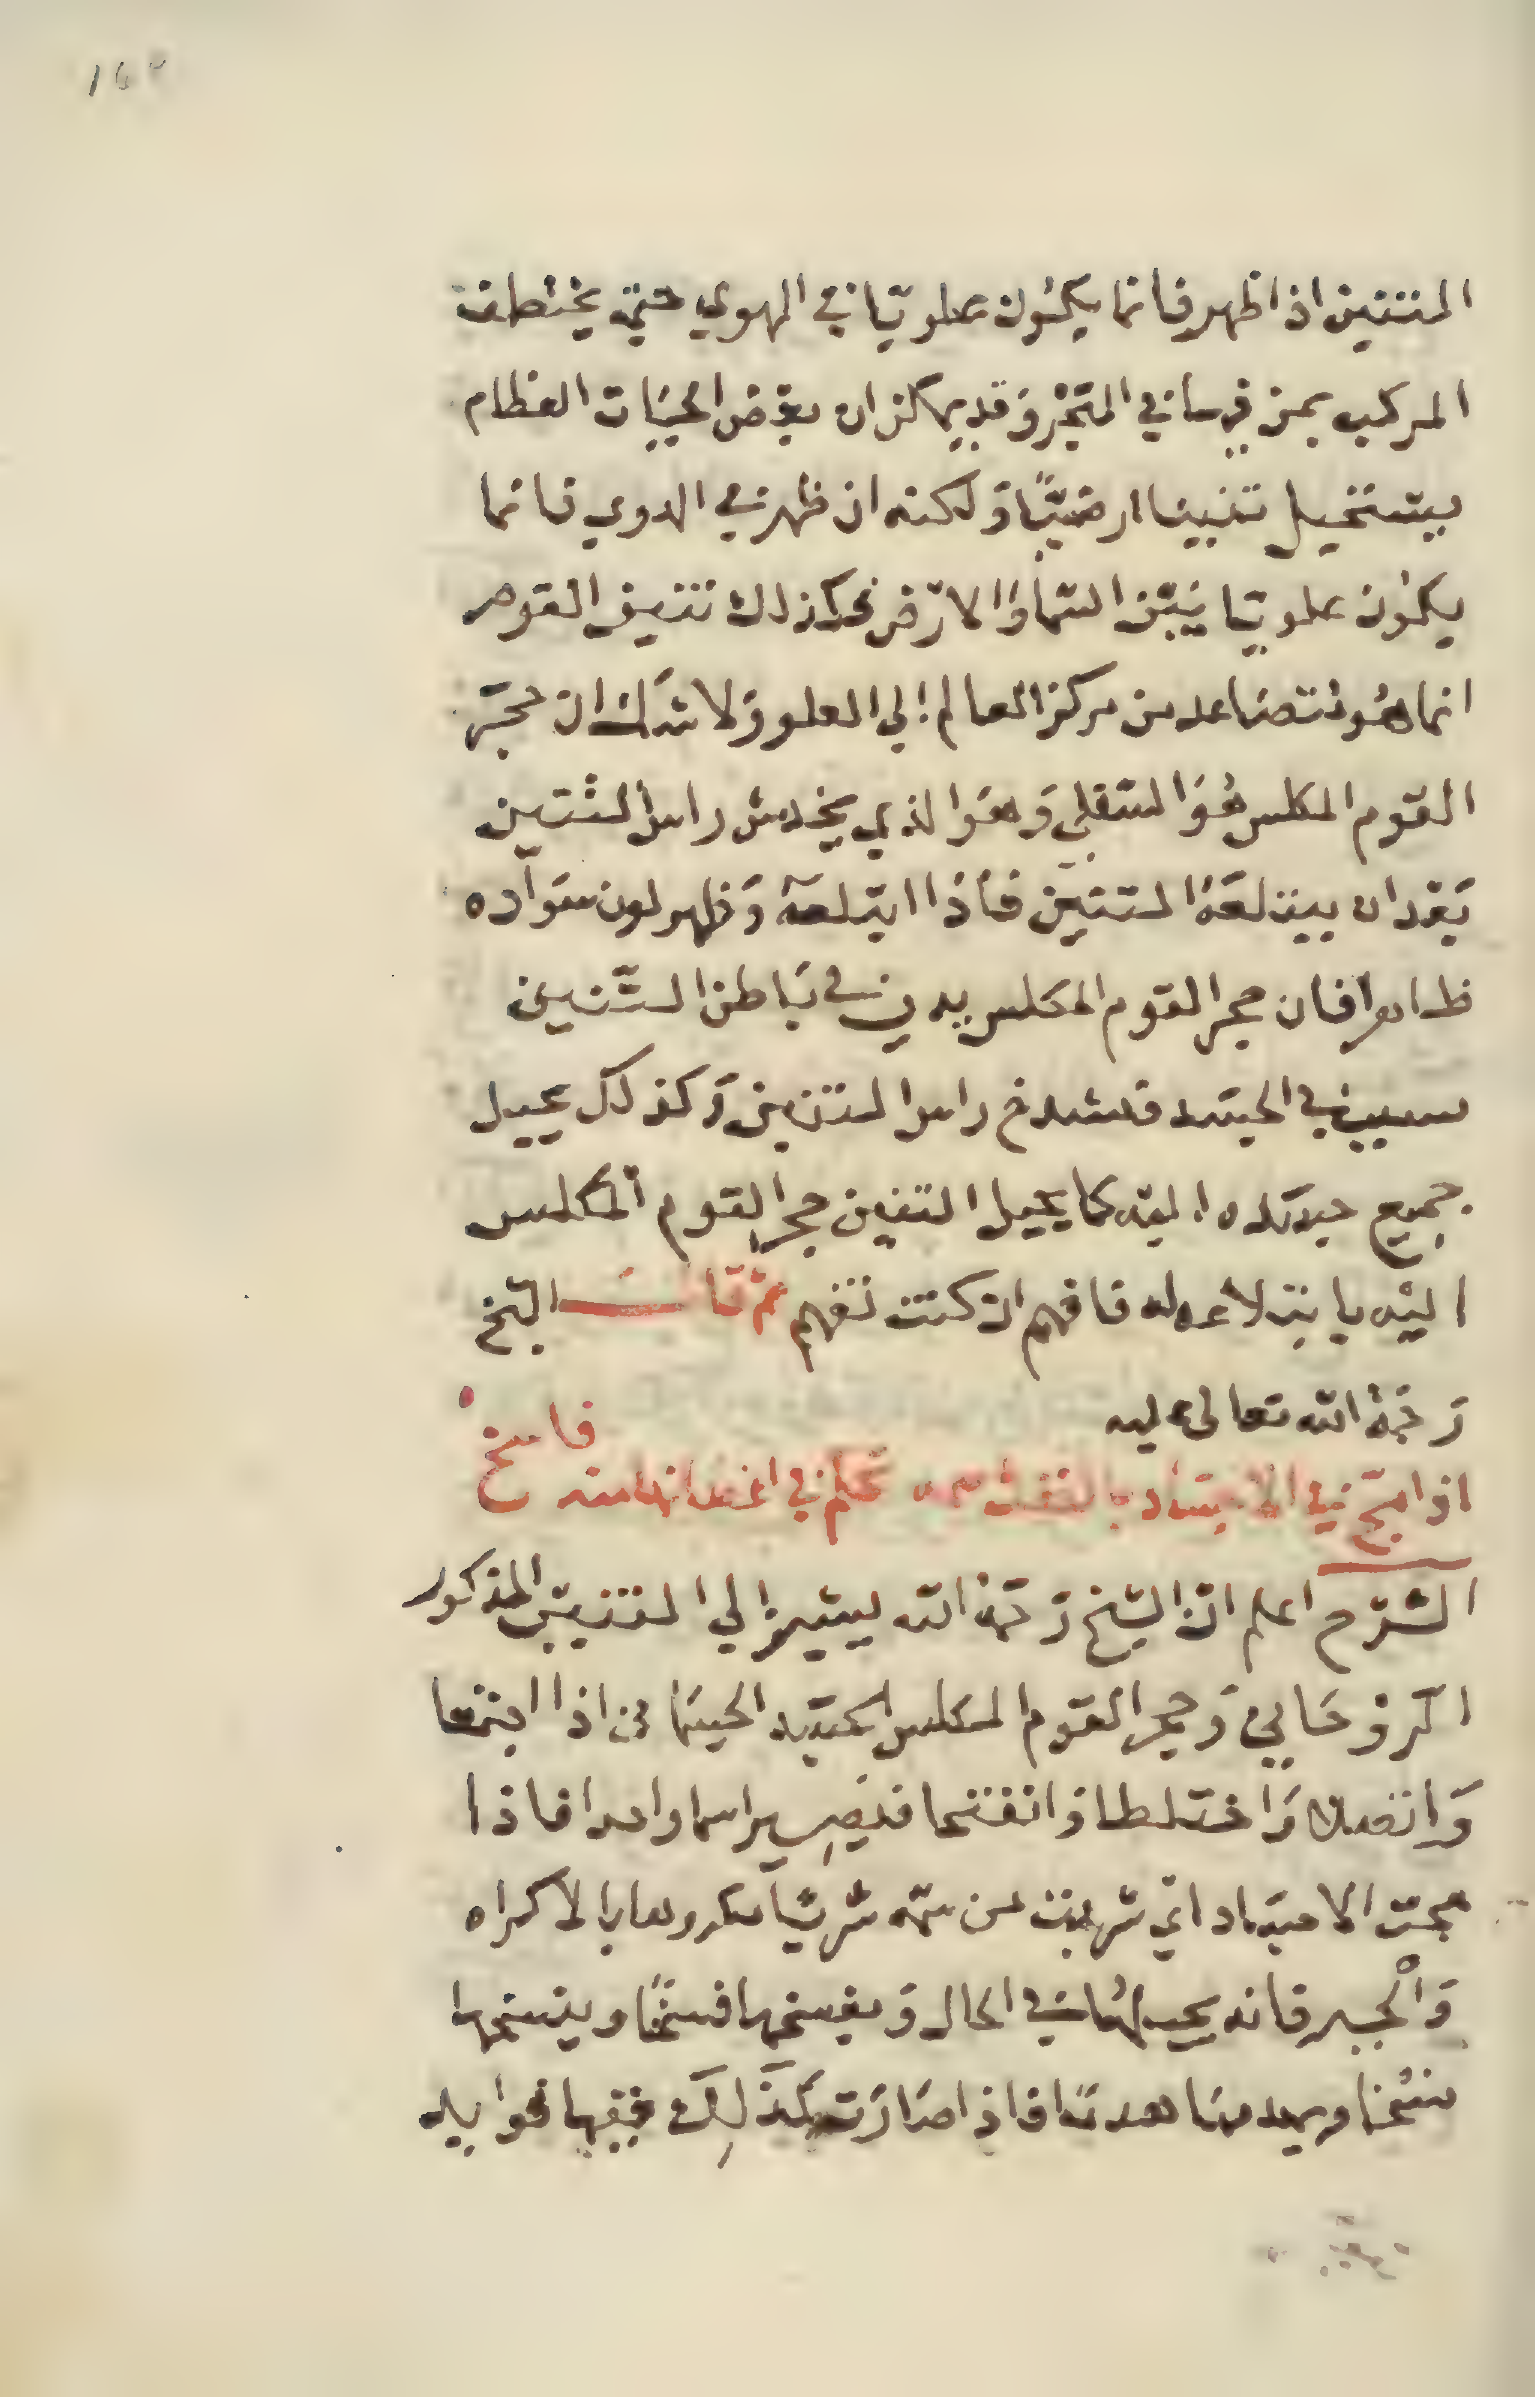 ١٤٢
التنين اذا ظهر فانما يكون علويا في الهوي حتي يختطف
المركب بمن فيها في البحر وقد يمكن ان بعض الحيات العظام
يستحيل تنينا ارضيا ولكنه ان ظهر في الدوي فانما
يكون علويا بين السما والارض فكذلك تنين القوم
انما هو تتصاعد من مركز العالم الي العلو ولا شك ان حجر
القوم المكلس هو السفلي وهو الذي يخدش راس التنين
بعد ان يبتلعه التنين فاذا ابتلعه وظهر لون سواده
ظاهرا فان حجر القوم المكلس يدق في باطن التنين
في الجسد فيشدخ راس التنين وكذلك يحيل
جميع جسده اليه كما يحيل التنين حجر القوم المكلس
اليه بابتلاعه له فافهم ان كنت تفهم ثم قال الشيخ
رحمة الله تعالى عليه
اذا مج في الاجساد بالنفث سمه تحكم في اعضائها منه فاسخ
الشرح اعلم ان الشيخ رحمه الله يشير الي التنين المذكور
الروحاني وحجر القوم المكلس الجسد الجسماني اذا اجتمعا
واتصلا واختلطا وانفتحا فيصير سما واحدا فاذا
مجت الاجساد اي شربت من سمه شربا مكروها بالاكراه
والجبر فانه يحيلها في الحال ويفسخها فسخا وينسخها
نسخا ويهدمها هدما فاذا صارت كذلك ففيها فوايد